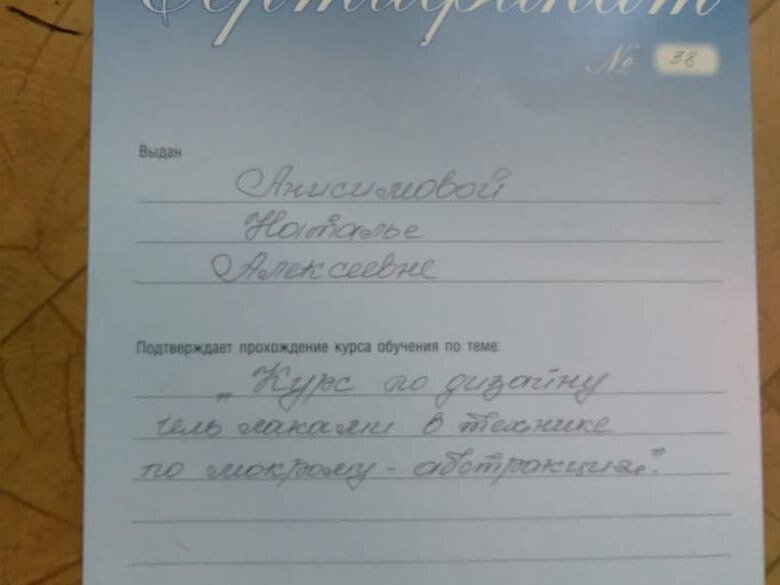 Сертификат
№ 38
Выдан
Анисимовой
Наталье
Алексеевне
Подтверждает прохождение курса обучения по теме:
„Курс по дизайну
гель лаками в технике
по мокрому - абстракция".